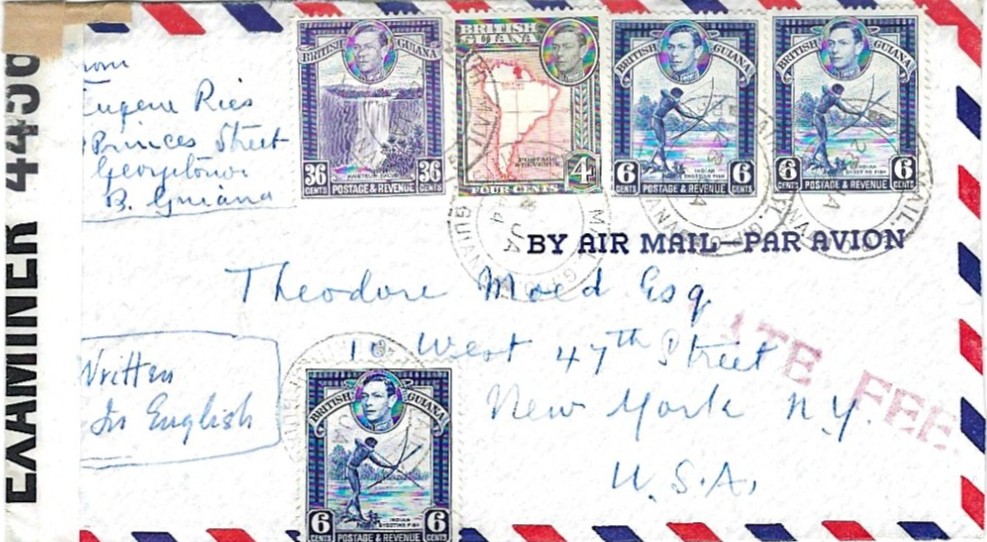 EXAMINER 4456
Eugene Ries
Princes Street
Georgetown
B. Guiana
BRITISH GUIANA
36 CENTS 36 CENTS
POSTAGE & REVENUE
BRITISH GUIANA
POSTAGE & REVENUE
4
FOUR CENTS
BRITISH GUIANA
INDIAN SHOOTING FISH
6 CENTS 6 CENTS
POSTAGE & REVENUE
BRITISH GUIANA
INDIAN SHOOTING FISH
6 CENTS 6 CENTS
POSTAGE & REVENUE
BY AIR MAIL—PAR AVION
Theodore Moed Esq
10 West 47th Street
New York N.Y.
U.S.A.
ATE FEE
Written
In English
BRITISH GUIANA
INDIAN SHOOTING FISH
6 CENTS 6 CENTS
POSTAGE & REVENUE